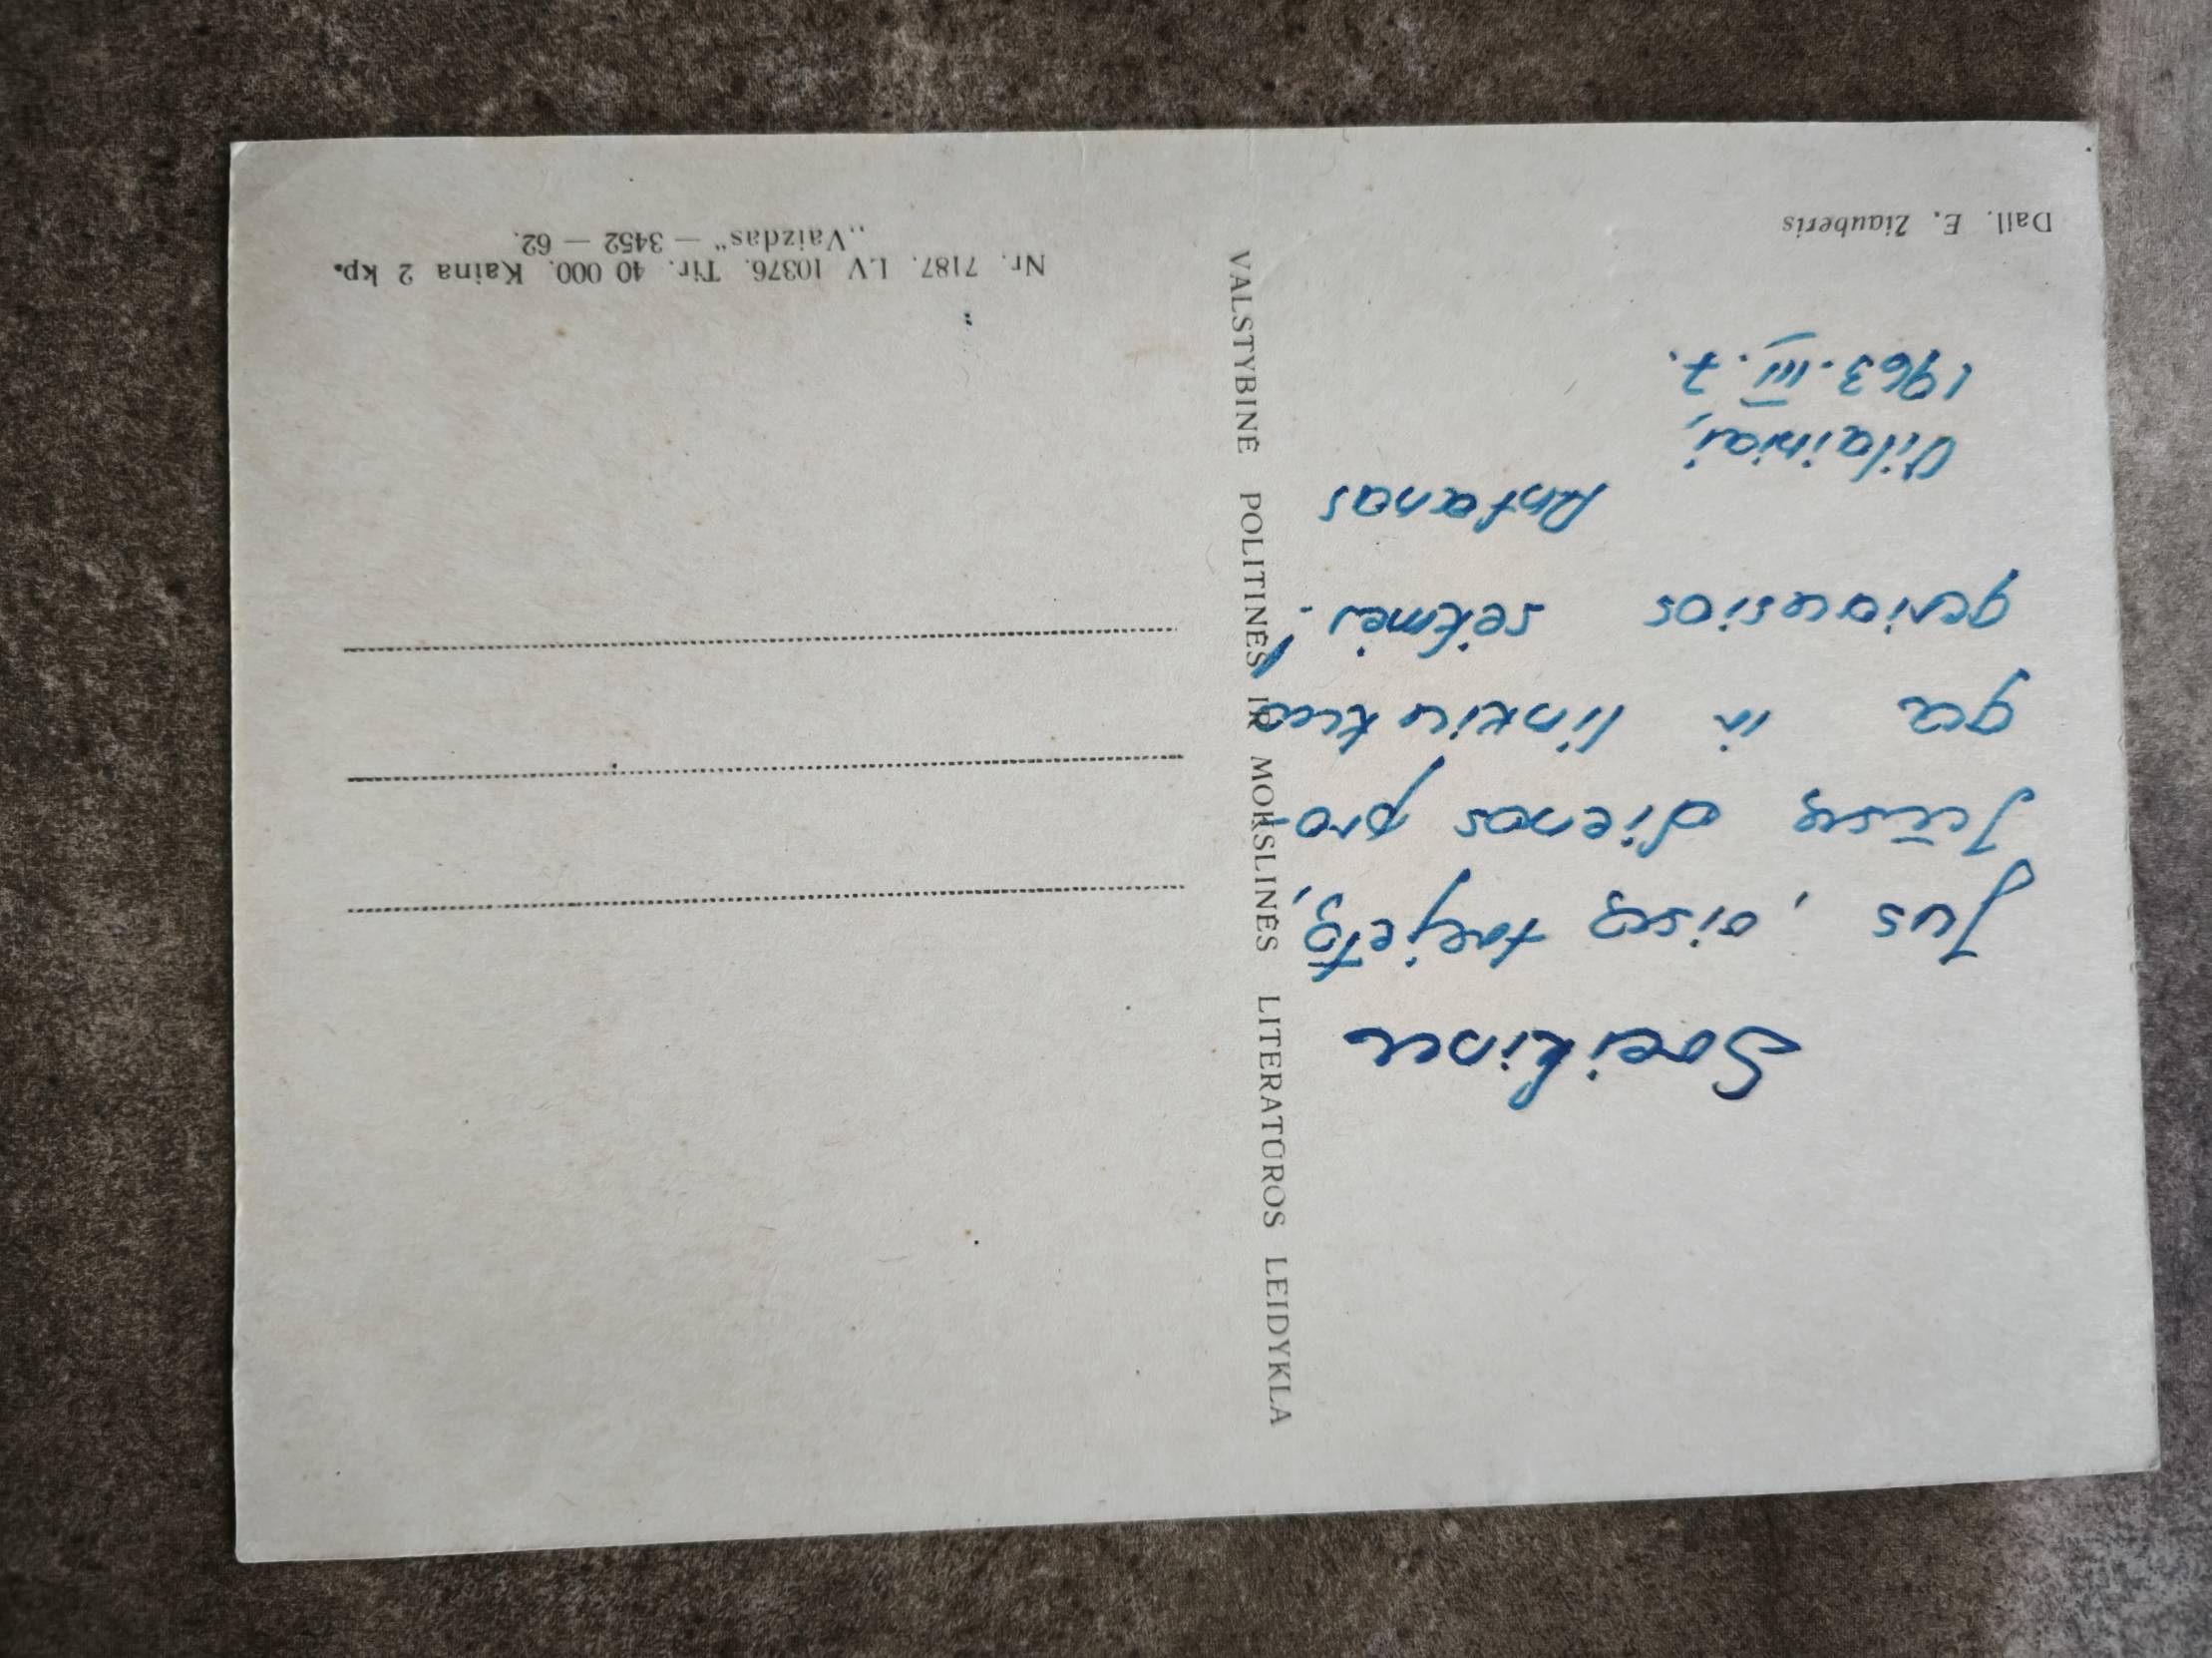 Sveikinu
Jus, visą
Jūsų dienos pro-
ga ir linkiu kuo
geriausios sėkmės.
Antanas
Vilainiai,
1963.III.7.
Dail. E. Žiauberis
VALSTYBINĖ POLITINĖS IR MOKSLINĖS LITERATŪROS LEIDYKLA
Nr. 7187. LV 10376. Tir. 40 000. Kaina 2 kp.
„Vaizdas“ — 3452 — 62.